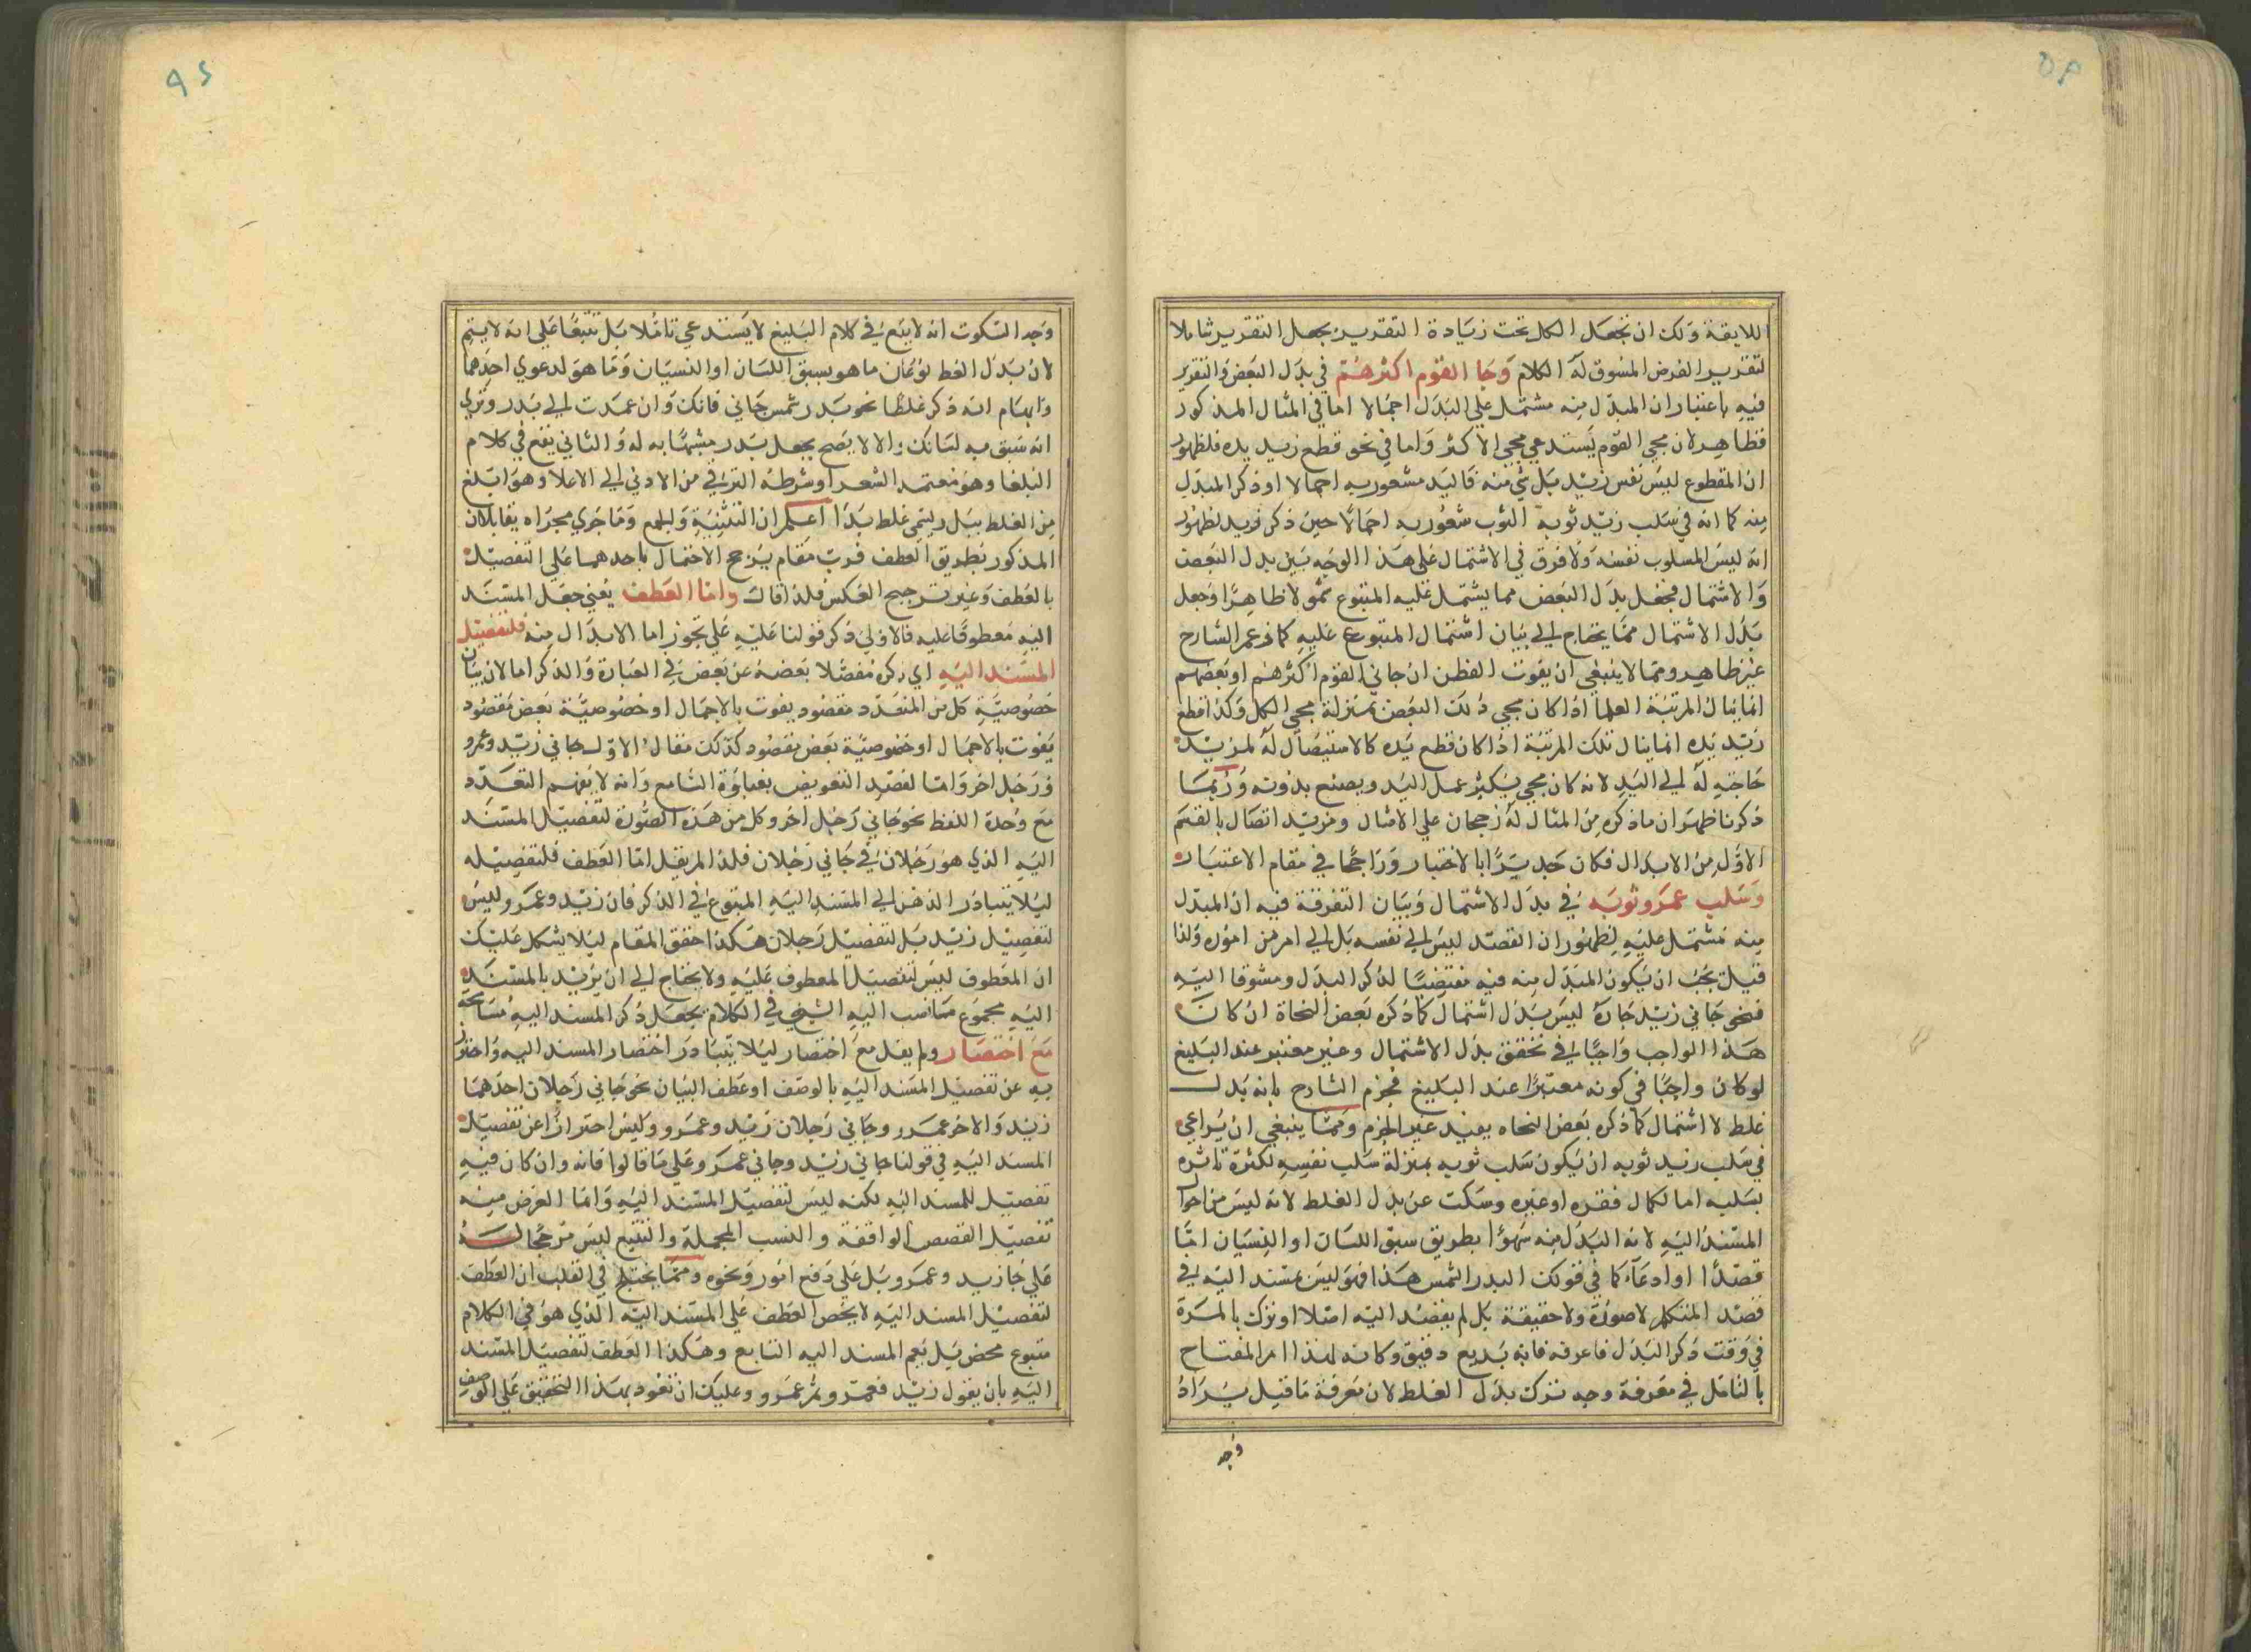 اللايقة ولك ان تجعل الكل تحت زيادة التقرير بجعل التقرير شاملا
لتقرير الغرض المسوق له الكلام وجا القوم اكثرهم في بدل البعض والتقرير
فيه باعتبار ان المبدل منه مشتمل على البدل اجمالا اما في المثال المذكور
فظاهر لان مجي القوم يستدعي مجي الاكثر واما في نحو قطع زيد يده فلظهور
ان المقطوع ليس نفس زيد بل شي منه فاليد مشعور به اجمالا او ذكر المبدل
منه كما انه في سلب زيد ثوبه الثوب شعور به اجمالا حين ذكر زيد لظهور
انه ليس المسلوب نفسه ولا فرق في الاشتمال على هذا الوجه بين بدل البعض
والاشتمال فجعل بدل البعض مما يشتمل عليه المتبوع شمولا ظاهرا وجعل
بدل الاشتمال مما يحتاج الى بيان اشتمال المتبوع عليه كما زعم الشارح
غير ظاهر ومما لا ينبغي ان يفوت الفطن ان جاني القوم اكثرهم او بعضهم
انما ينال المرتبة العليا اذا كان مجي ذلك البعض بمنزلة مجي الكل وكذا قطع
زيد يده انما ينال تلك المرتبة اذا كان قطع يده كالاستيصال له لمزيد
حاجته له الى اليد لانه كان مجي يكثر عمل اليد ويصنع بذوته وربما
ذكرنا ظهر ان ما ذكره من المثال له رجحان على الامثال ومزيد اتصال بالقسم
الاول من الابدال فكان جديرا بالاختيار وراجحا في مقام الاعتبار
وسلب عمرو ثوبه في بدل الاشتمال وبيان التفرقة فيه ان المبدل
منه مشتمل عليه لظهور ان القصد ليس الى نفسه بل الى امر من اموره ولذا
قيل يجب ان يكون المبدل منه فيه مقتضيا لذكر البدل ومشوقا اليه
فنحو جاني زيد جاره ليس بدل اشتمال كما ذكره بعض النحاة ان كان
هذا الواجب واجبا في تحقق بدل الاشتمال وغير معتبر عند البليغ
لو كان واجبا في كونه معتبرا عند البليغ فجزم الشارح بانه بدل
غلط لا اشتمال كما ذكره بعض النحاه يفيد غير الجزم ومما ينبغي ان يراعي
في سلب زيد ثوبه ان يكون سلب ثوبه بمنزلة سلب نفسه لكثرة تاثره
بسلبه اما لكمال فقره او غيره وسكت عن بدل الغلط لانه ليس من احوال
المسند اليه لانه البدل منه سهوا بطريق سبق اللسان او النسيان اما
قصدا او ادعاء كما في قولك البدر الشمس هذا فهو ليس مسند اليه في
قصد المتكلم لا صورة ولا حقيقة بل لم يقصد اليه اصلا او ترك بالمرة
في وقت ذكر البدل فاعرفه فانه بديع دقيق وكانه لهذا امر المفتاح
بالتامل في معرفة وجه ترك بدل الغلط لان معرفة ما قيل يراد
وجه
وجه السكوت انه لا يقع في كلام البليغ لا يستدعي تاملا بل تتبعا على انه لا يتم
لان بدل الغلط نوعان ما هو بسبق اللسان او النسيان وما هو لدعوي احدهما
وايهام انه ذكر غلطا نحو بدر شمس جاني فانك وان عمدت الى بدر وتري
انه سبق به لسانك والا لا يصح بجعل بدر مشبها به له والثاني يقع في كلام
البلغا وهو معتمد الشعرا وشرطه الترقي من الادني الى الاعلا وهو ابلغ
من الغلط ببل ويسمي غلط بدا اعلم ان التثنية والجمع وما جري مجراه يقابلان
المذكور بطريق العطف فرب مقام يترجح الاحتمال باحدهما على التفصيل
بالعطف وغير ترجيح العكس فلذا قال واما العطف يعني جعل المسند
اليه معطوفا عليه فالاولي ذكر قولنا عليه على تجوز اما الابدال منه فلتفصيل
المسند اليه اي ذكره مفصلا بعضه عن بعض في العبارة والذكر اما لان بيان
خصوصية كل من المتعدد مقصود يفوت بالاجمال او خصوصية بعض مقصود
يفوت بالاجمال او خصوصية بعض مقصود كذلك مثال الاول جاني زيد وعمرو
ورجل اخر واما لقصد التعويض بغباوة السامع وانه لا يفهم التعدد
مع وحدة اللفظ نحو جاني رجل اخر وكل من هذه الصورة لتفصيل المسند
اليه الذي هو رجلان في جاني رجلان فلذا لم يقل اما العطف فلتفصيله
ليلا يتبادر الذهن الى المسند اليه المتبوع في الذكر فان زيد وعمرو ليس
لتفصيل زيد بل لتفصيل رجلان هكذا حقق المقام ليلا يشكل عليك
ان المعطوف ليس لتفصيل المعطوف عليه ولا يحتاج الى ان يزيد بالمسند
اليه مجموع ما نسب اليه الشي في الكلام بجعل ذكر المسند اليه مسامحة
مع اختصار ولم يقل مع اختصار ليلا يتبادر اختصار المسند اليه واحترز
به عن تفصيل المسند اليه بالوصف او عطف البيان نحو جاني رجلان احدهما
زيد والاخر عمرو وجاني رجلان زيد وعمرو وليس احترازا عن تفصيل
المسند اليه في قولنا جاني زيد وجاني عمرو على ما قالوا فانه وان كان فيه
تفصيل للمسند اليه لكنه ليس لتفصيل المسند اليه وانما الغرض منه
تفصيل القصص الواقعة والنسب المجملة والتتبع ليس مرجحا لسه
على جا زيد وعمرو بل على دفع امور ونحوه ومما يختلج في القلب ان العطف
لتفصيل المسند اليه لا يخص العطف على المسند اليه الذي هو في الكلام
متبوع محض بل يعم المسند اليه التابع وهكذا العطف لتفصيل المسند
اليه بان يقول زيد فعمرو ثم عمرو وعليك ان تعود بهذا التحقيق على الوصف